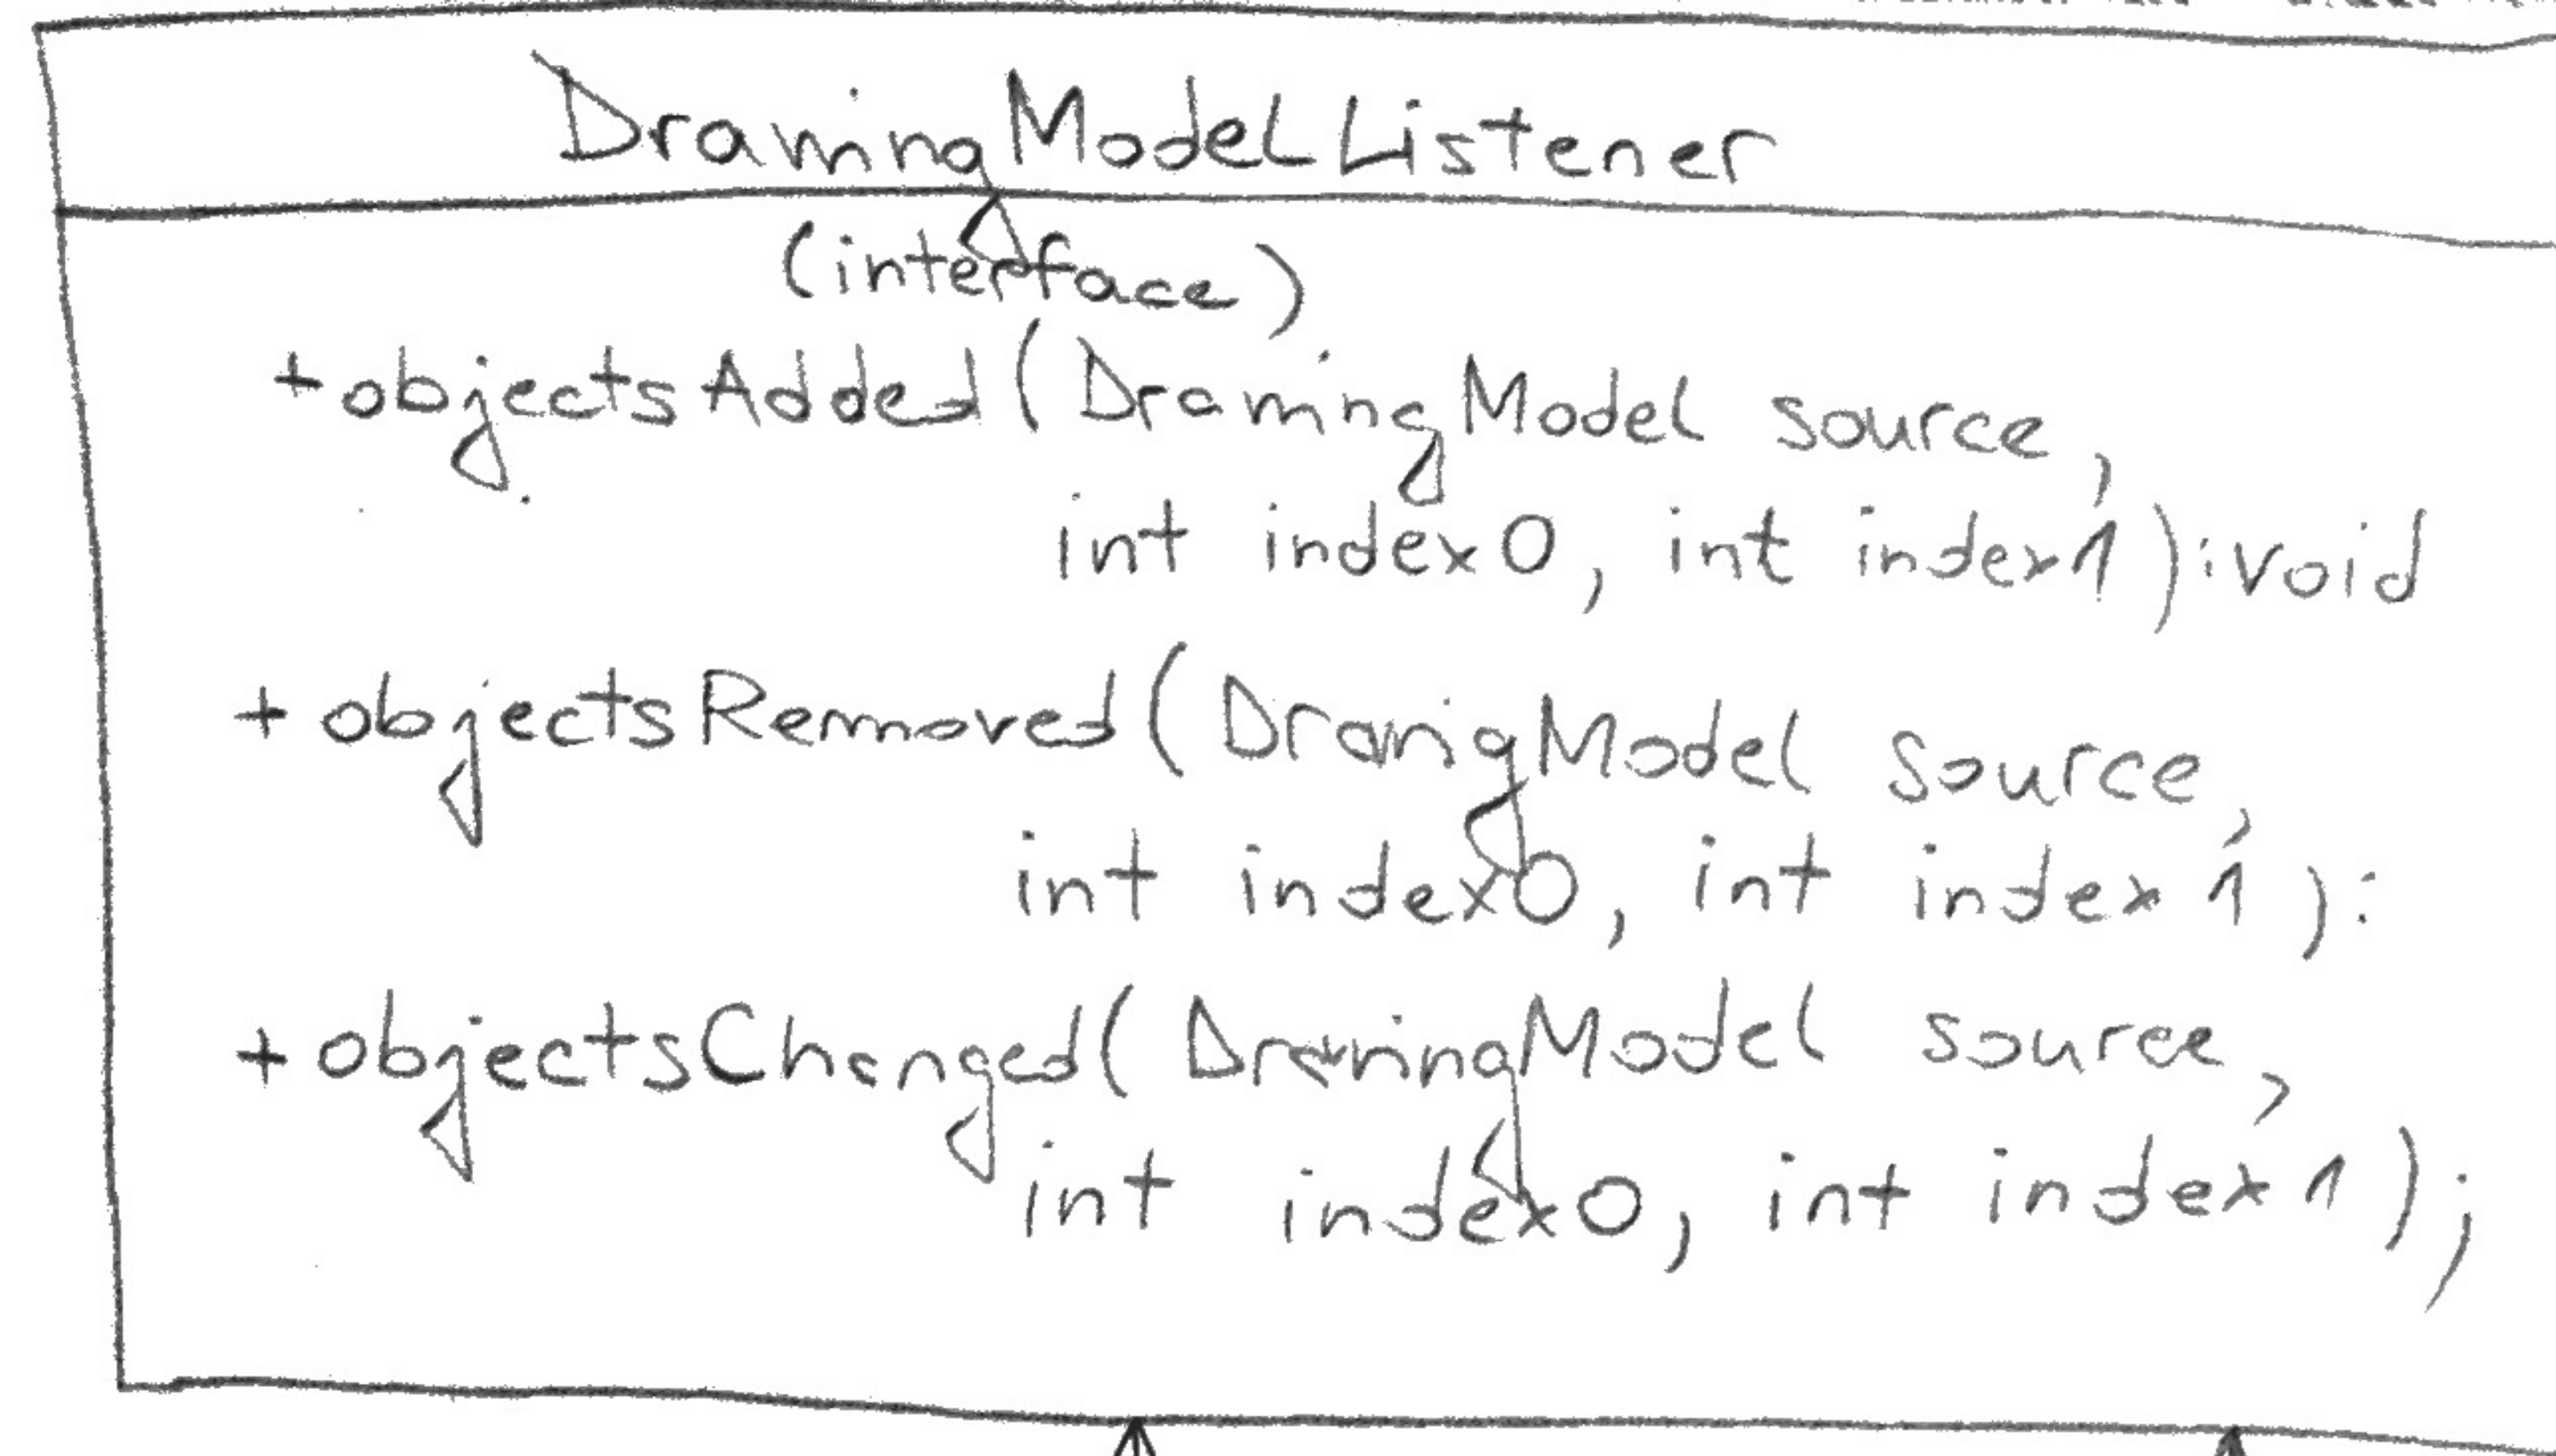 DrawingModelListener
(interface)
+objectsAdded(DrawingModel source,
int index0, int index1):void
+objectsRemoved(DrawingModel source,
int index0, int index1):
+objectsChanged(DrawingModel source,
int index0, int index1);